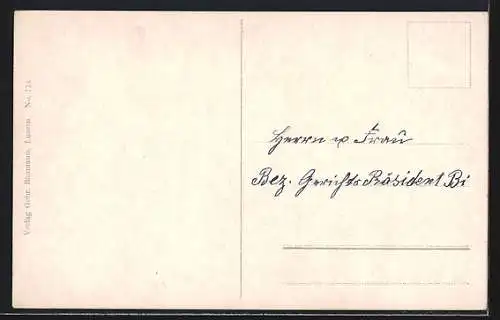 Verlag Gebr. Bussmann, Luzern No. 724
Herrn u Frau
Bez. Gerichts Präsident Bi